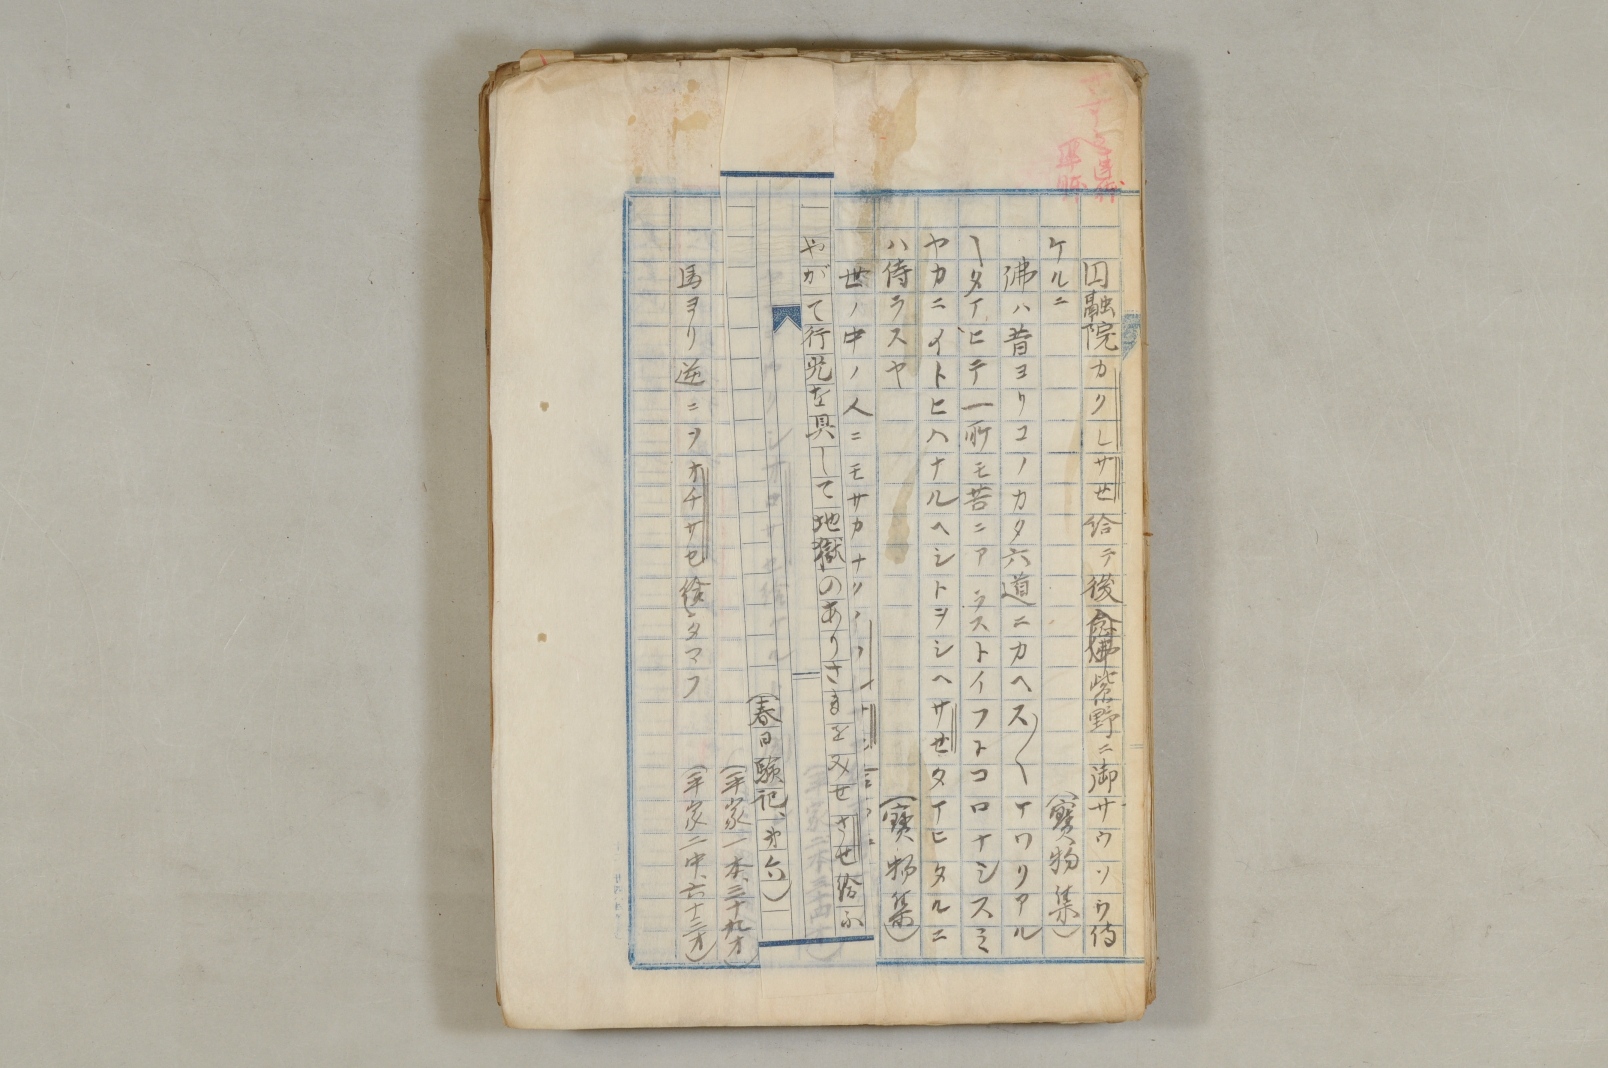 囚融院カクレサせ給テ後念佛紫野ニ御サウソウ侍
ケルニ
(寶物集)
佛ハ昔ヨリコノカタ六道ニカヘス〱イワリアル
一タイヒテ一所モ苦ニアラストイフトコロナシスミ
ヤカニイトヒハナルヘシトヲシヘサせタイヒタルニ
ハ侍ラスヤ
(寶物集)
世ノ中ノ人ニモサカナリ
やがて行光を具して地獄のありさまをみせさせ給ふ
(春日験記、第六)
(平家一本、三十九オ)
馬ヨリ逆ニヲオチサセ給タマフ
(平家二中、六十三オ)